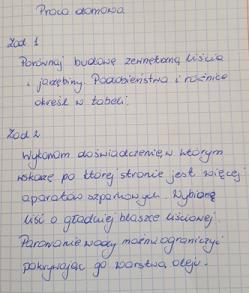 Praca domowa
Zad 1
Porównaj budowę zewnętrzną liścia
i jarzębiny. Podobieństwa i różnice
określ w tabeli.
Zad 2
Wykonam doświadczenie, w którym
wskażę po której stronie jest więcej
aparatów szparkowych. Wybiorę
liść o gładkiej blaszce liściowej.
Parowanie wody można ograniczyć
pokrywając go warstwą oleju.